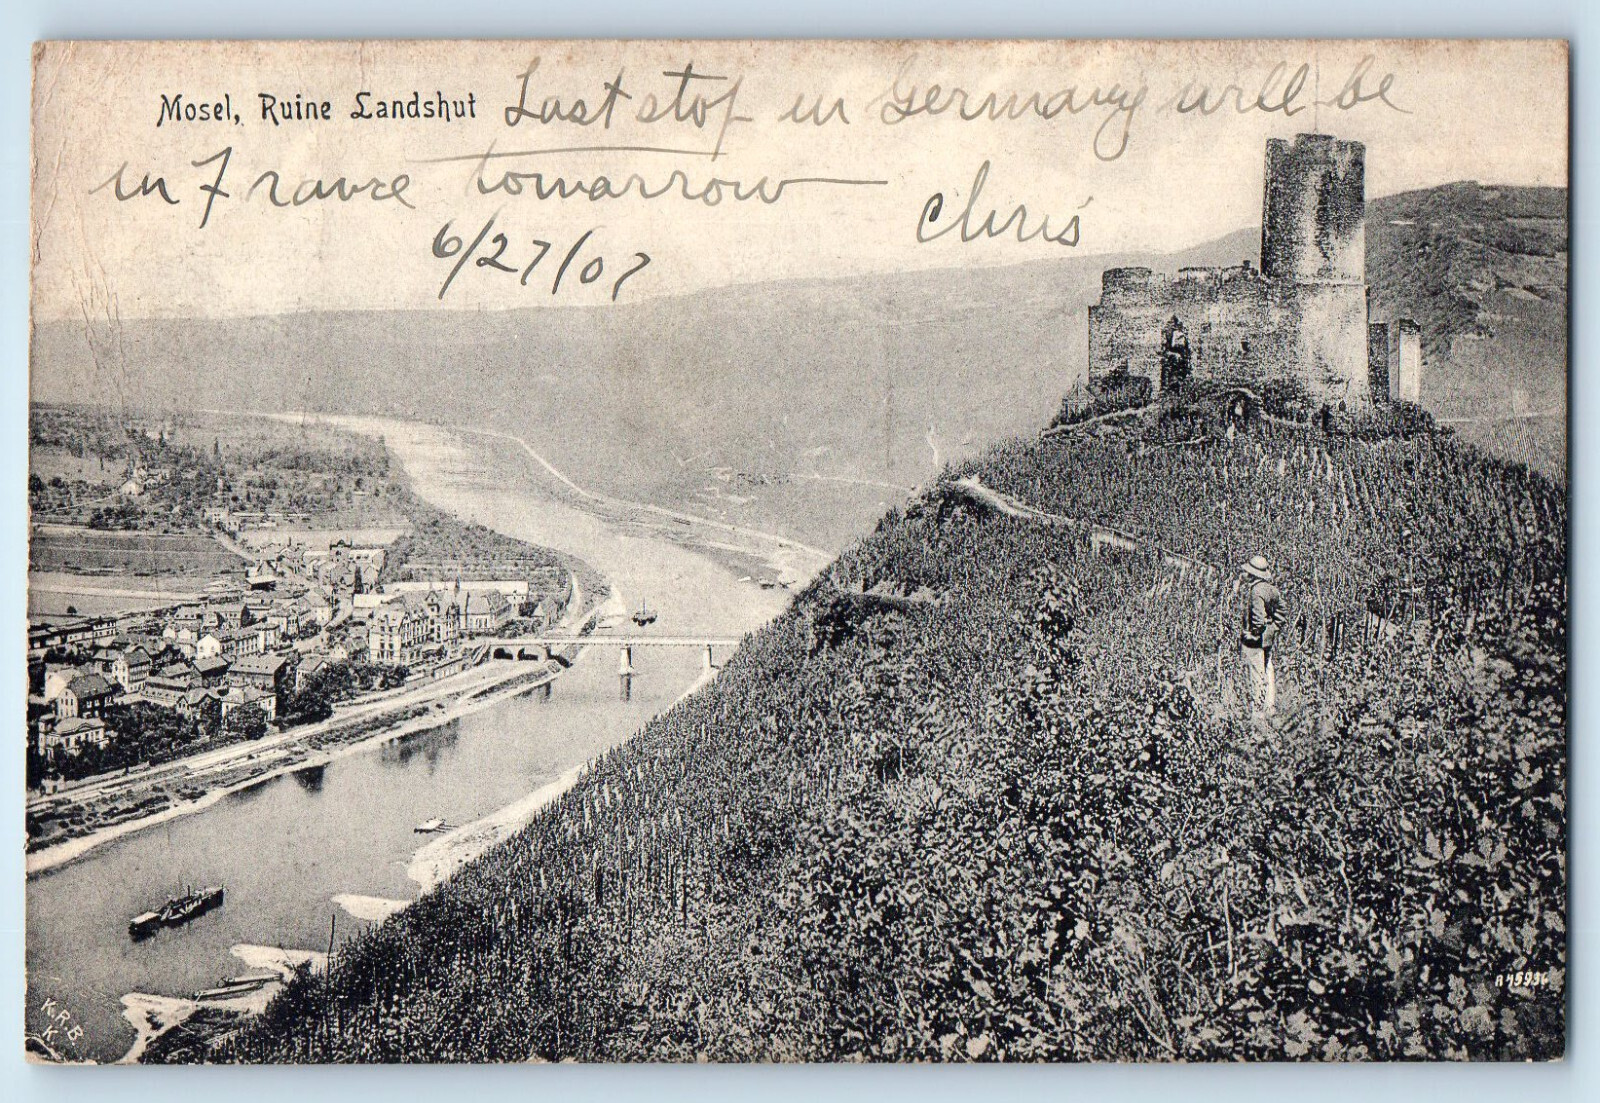 Mosel, Ruine Landshut Last stop in Germany will be
in France tomarrow
Chris
6/27/07
K.R.B.
K.
A 45936